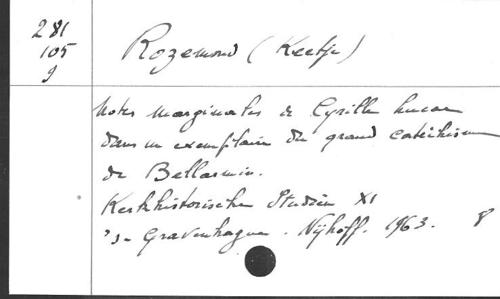 281
105
9
Rozemond (Keetje)
Notes marginales de Cyrille Lucar
dans un exemplaire du grand catéchisme
de Bellarmin.
Kerkhistorische Studien XI
's-Gravenhague. Nijhoff. 1963. 8